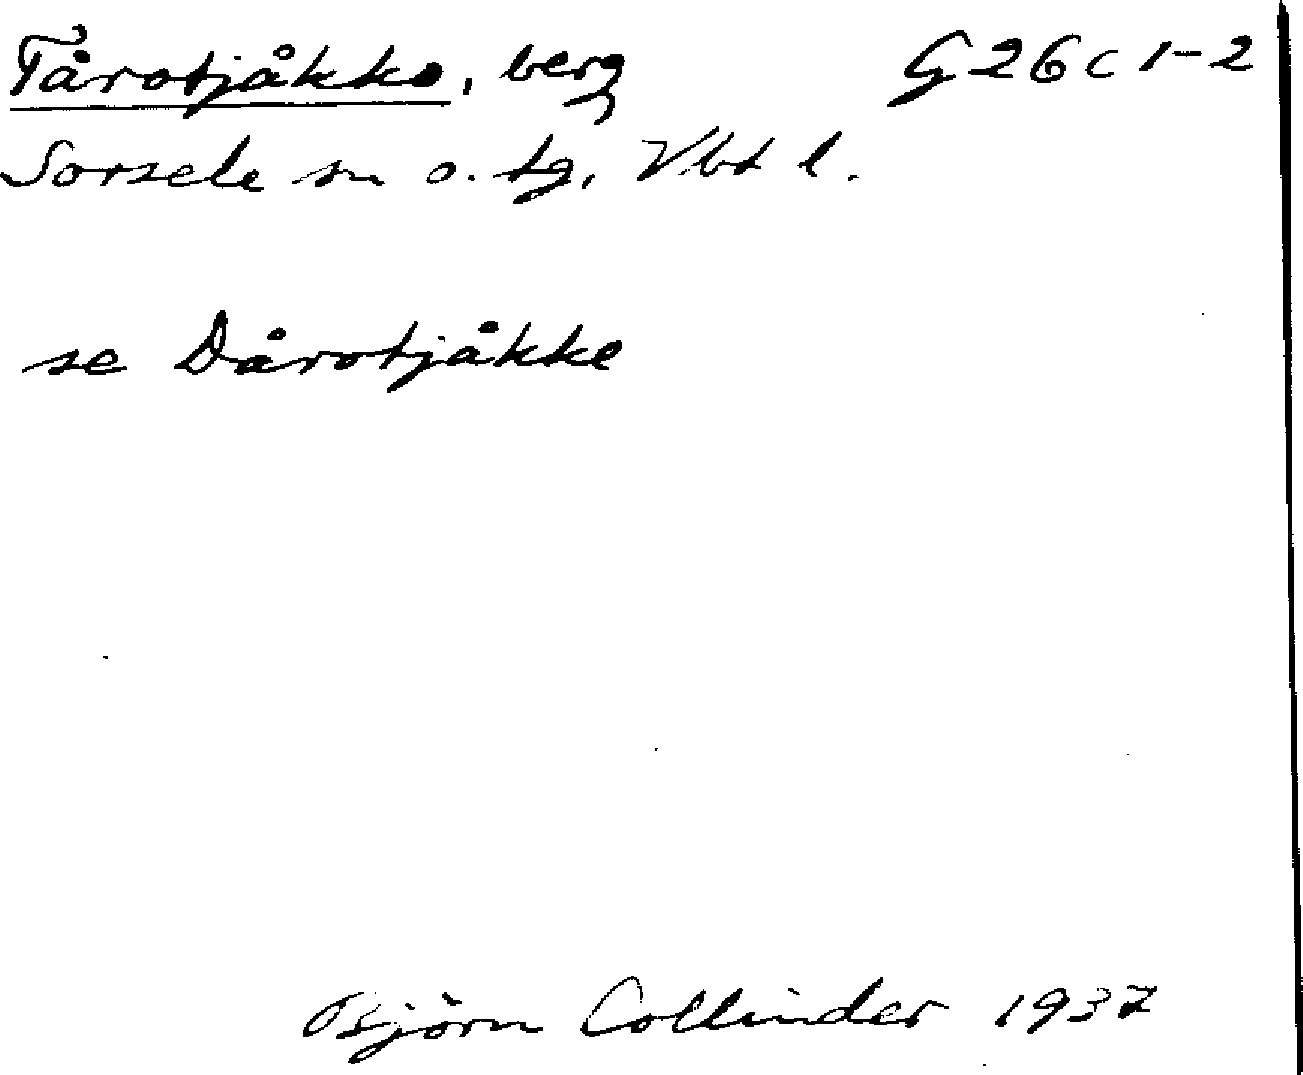 Tårotjåkko, berg G26c 1-2
Sorsele sn o. tg, Vbt l.
se Dårotjåkke
Björn Collinder 1937